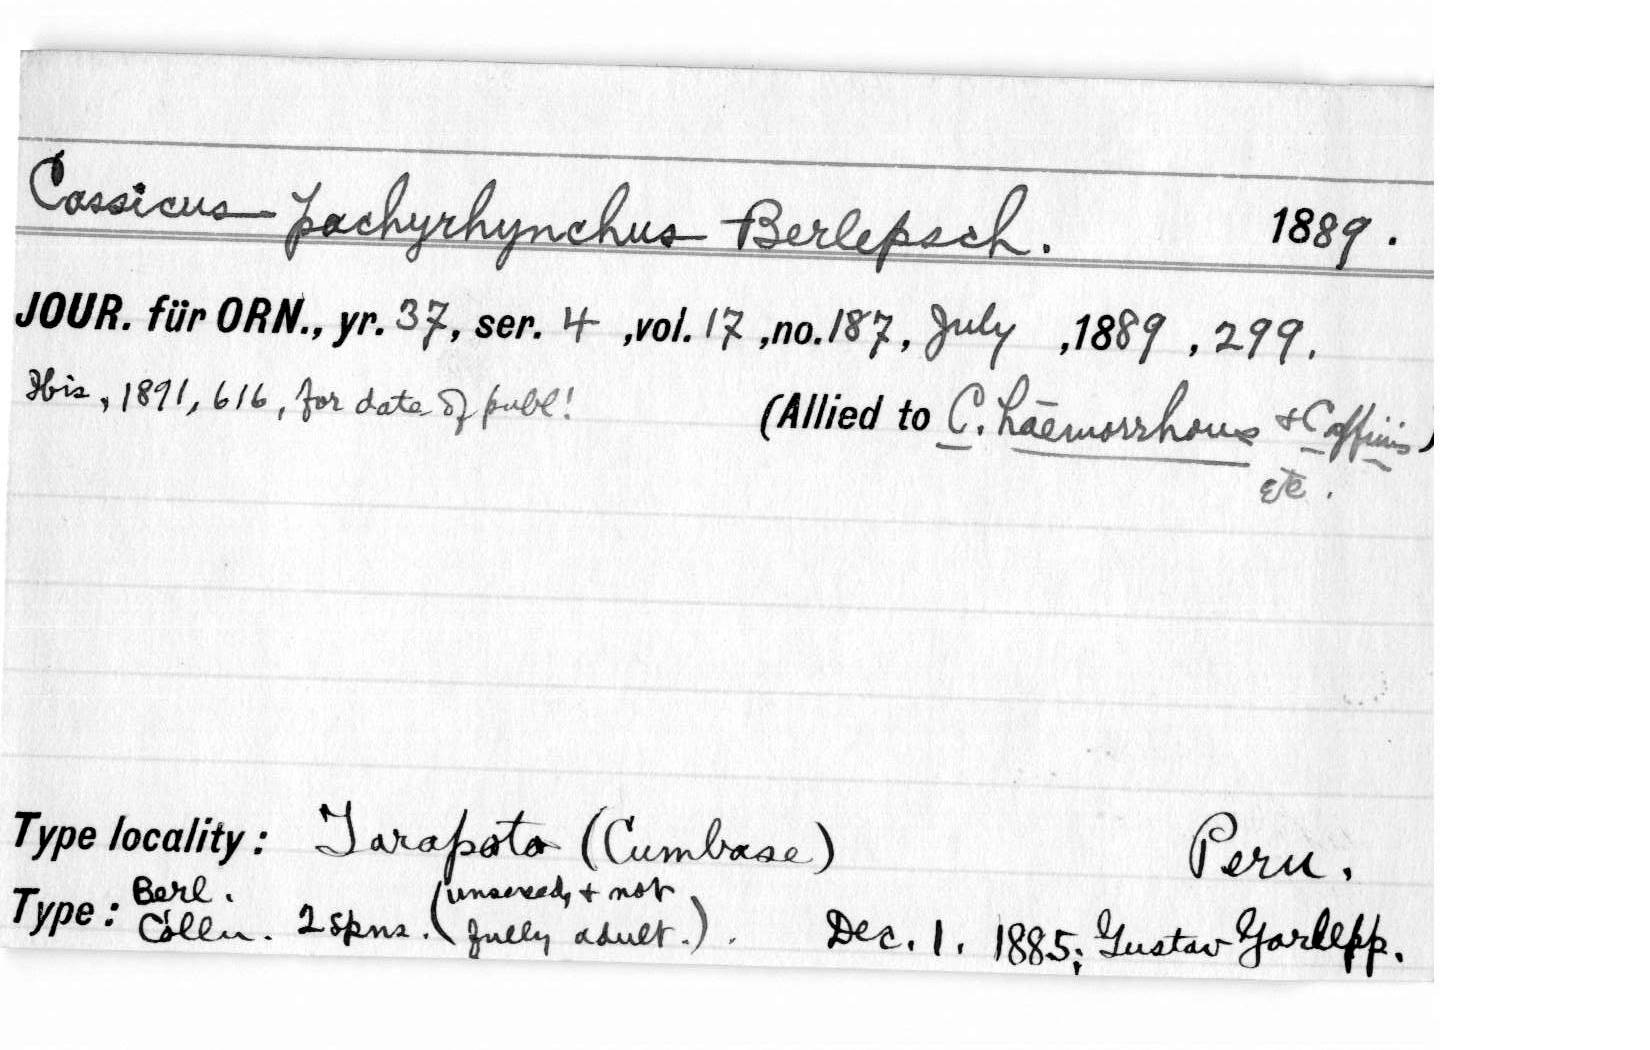 Cassicus pachyrhynchus Berlepsch. 1889.
JOUR. für ORN., yr. 37, ser. 4, vol. 17, no. 187, July, 1889, 299.
Ibis, 1891, 616, for date of publ! (Allied to C. haemorrhous & C. affinis)
etc.
Type locality: Tarapoto (Cumbase) Peru.
Type: Berl. Colln. 2 spns. (unsexed, & not fully adult.). Dec. 1. 1885; Gustav Garlepp.